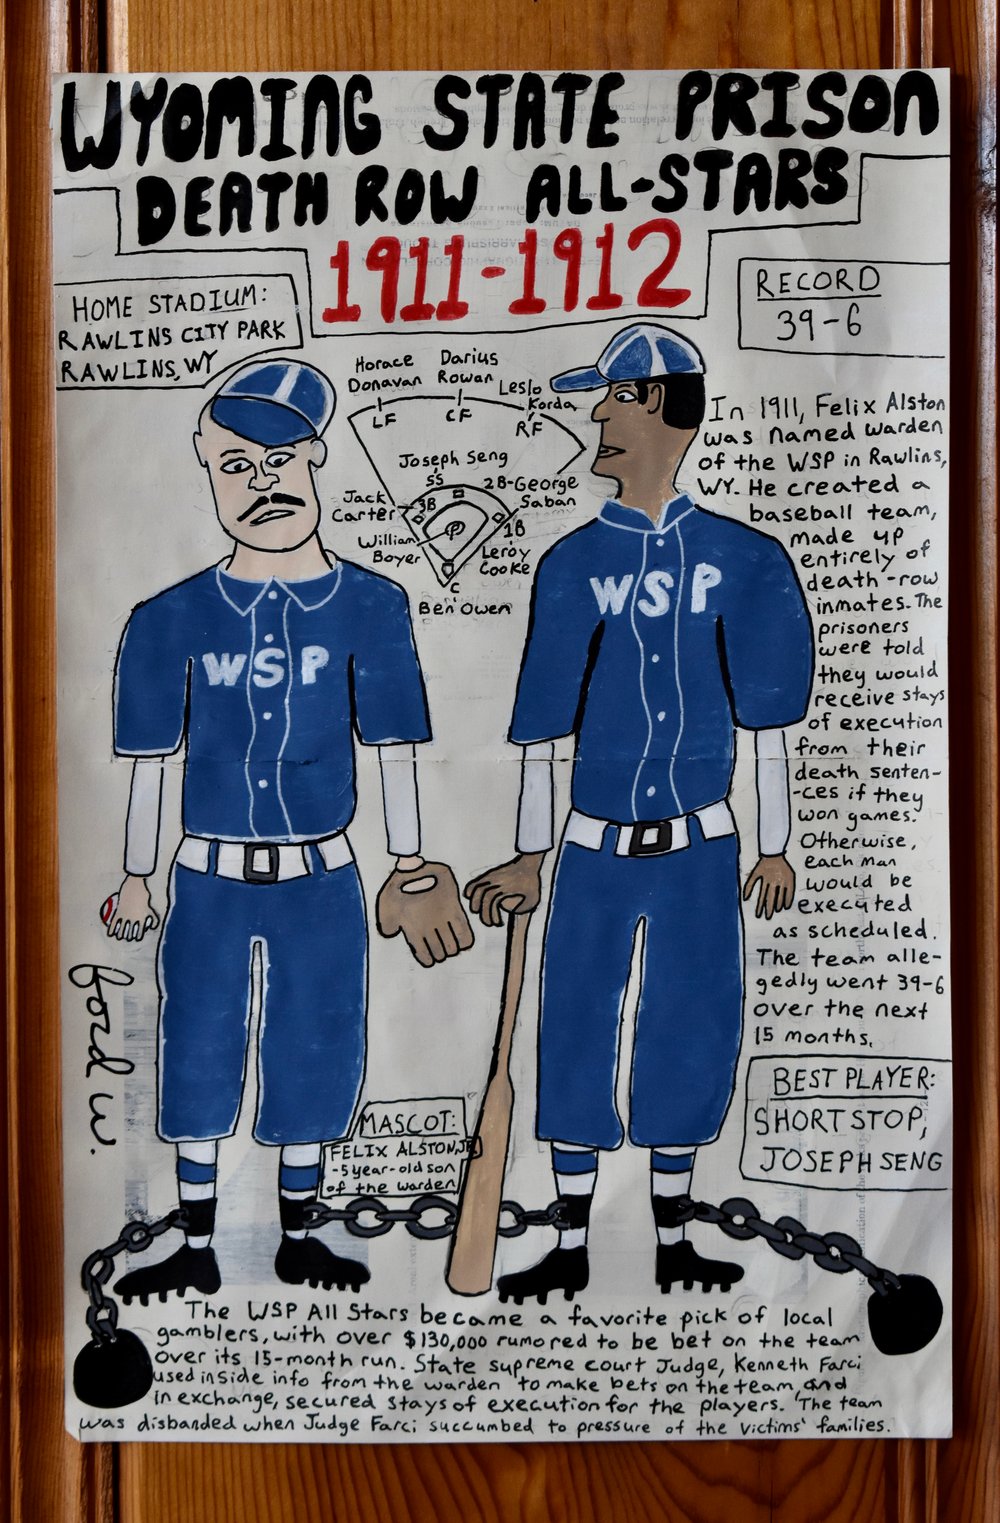 WYOMING STATE PRISON
DEATH ROW ALL-STARS
1911-1912
HOME STADIUM:
RAWLINS CITY PARK
RAWLINS, WY
RECORD
39-6
Horace
Donavan
LF
Darius
Rowan
CF
Leslo
Korda
RF
Joseph Seng
SS
2B-George
Saban
Jack
Carter
3B
William
Boyer
P
1B
Leroy
Cooke
C
Ben Owen
In 1911, Felix Alston
was named warden
of the WSP in Rawlins,
WY. He created a
baseball team,
made up
entirely of
death-row
inmates. The
prisoners
were told
they would
receive stays
of execution
from their
death senten-
-ces if they
won games.
Otherwise,
each man
would be
executed
as scheduled.
The team alle-
gedly went 39-6
over the next
15 months.
WSP
WSP
ford w.
MASCOT:
FELIX ALSTON, JR.
-5 year-old son
of the warden
BEST PLAYER:
SHORTSTOP,
JOSEPH SENG
The WSP All Stars became a favorite pick of local
gamblers, with over $130,000 rumored to be bet on the team
over its 15-month run. State supreme court Judge, Kenneth Farci
used inside info from the warden to make bets on the team, and
in exchange, secured stays of execution for the players. The team
was disbanded when Judge Farci succumbed to pressure of the victims' families.